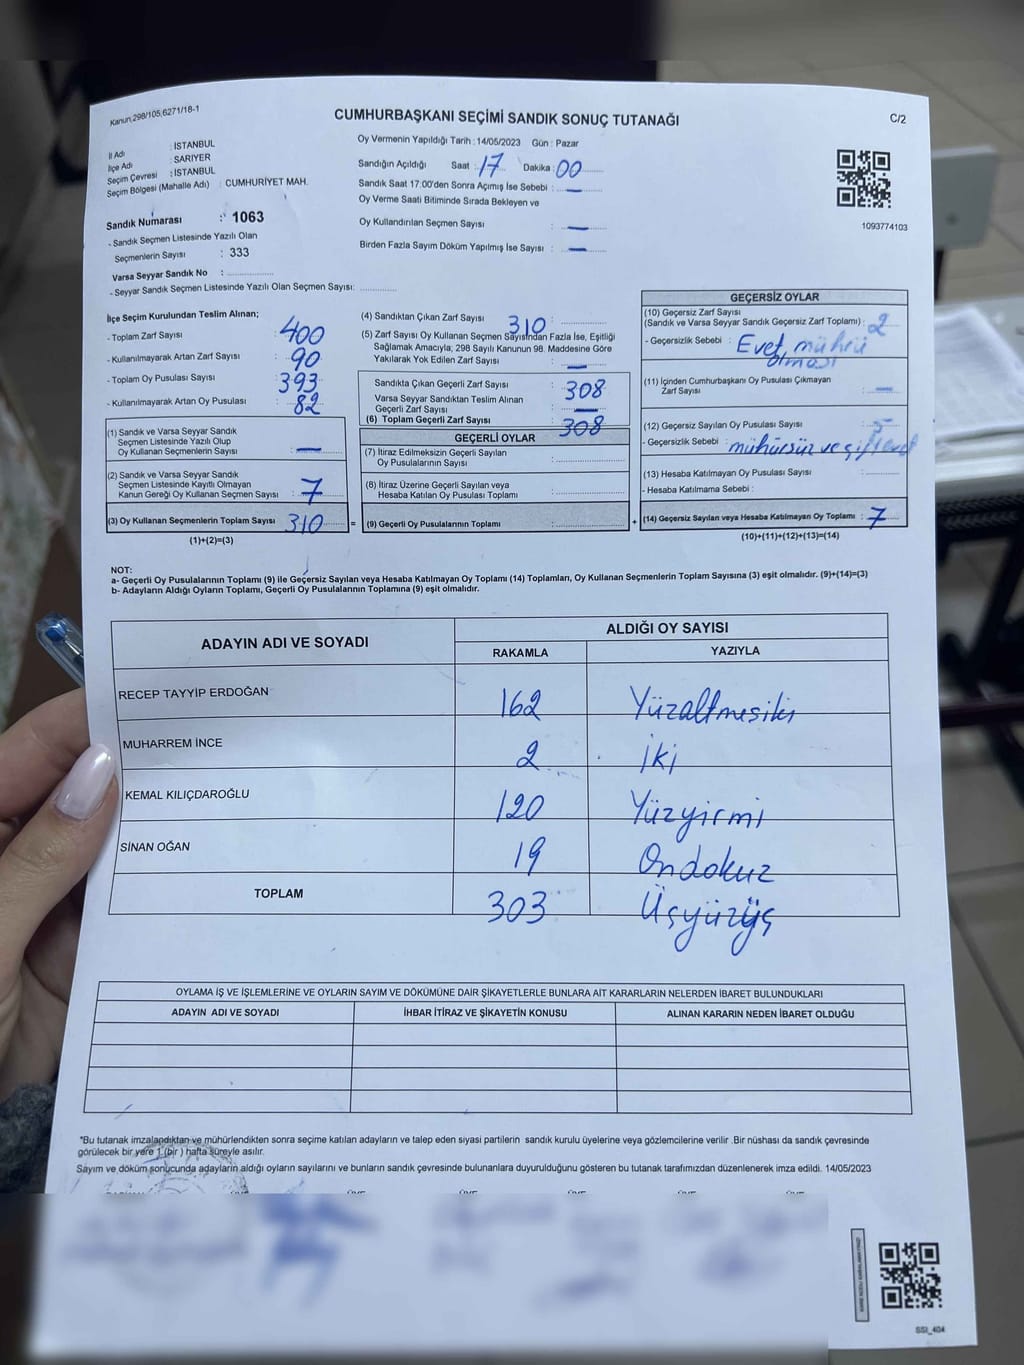 Kanun,298/105,6271/18-1
CUMHURBAŞKANI SEÇİMİ SANDIK SONUÇ TUTANAĞI
C/2
İl Adı : İSTANBUL
İlçe Adı : SARIYER
Seçim Çevresi : İSTANBUL
Seçim Bölgesi (Mahalle Adı) : CUMHURİYET MAH.
Sandık Numarası : 1063
- Sandık Seçmen Listesinde Yazılı Olan
Seçmenlerin Sayısı : 333
Varsa Seyyar Sandık No :
- Seyyar Sandık Seçmen Listesinde Yazılı Olan Seçmen Sayısı:
Oy Vermenin Yapıldığı Tarih : 14/05/2023 Gün : Pazar
Sandığın Açıldığı Saat : 17 Dakika : 00
Sandık Saat 17:00'den Sonra Açımış İse Sebebi : —
Oy Verme Saati Bitiminde Sırada Bekleyen ve
Oy Kullandırılan Seçmen Sayısı : —
Birden Fazla Sayım Döküm Yapılmış İse Sayısı : —
1093774103
İlçe Seçim Kurulundan Teslim Alınan;
- Toplam Zarf Sayısı : 400
- Kullanılmayarak Artan Zarf Sayısı : 90
- Toplam Oy Pusulası Sayısı : 393
- Kullanılmayarak Artan Oy Pusulası : 82
(1) Sandık ve Varsa Seyyar Sandık
Seçmen Listesinde Yazılı Olup
Oy Kullanan Seçmenlerin Sayısı : —
(2) Sandık ve Varsa Seyyar Sandık
Seçmen Listesinde Kayıtlı Olmayan
Kanun Gereği Oy Kullanan Seçmen Sayısı : 7
(3) Oy Kullanan Seçmenlerin Toplam Sayısı : 310 =
(1)+(2)=(3)
(4) Sandıktan Çıkan Zarf Sayısı : 310
(5) Zarf Sayısı Oy Kullanan Seçmen Sayısından Fazla İse, Eşitliği
Sağlamak Amacıyla, 298 Sayılı Kanunun 98. Maddesine Göre
Yakılarak Yok Edilen Zarf Sayısı : —
Sandıkta Çıkan Geçerli Zarf Sayısı : 308
Varsa Seyyar Sandıktan Teslim Alınan
Geçerli Zarf Sayısı : —
(6) Toplam Geçerli Zarf Sayısı : 308
GEÇERLİ OYLAR
(7) İtiraz Edilmeksizin Geçerli Sayılan
Oy Pusulalarının Sayısı :
(8) İtiraz Üzerine Geçerli Sayılan veya
Hesaba Katılan Oy Pusulası Toplamı :
(9) Geçerli Oy Pusulalarının Toplamı : +
GEÇERSİZ OYLAR
(10) Geçersiz Zarf Sayısı
(Sandık ve Varsa Seyyar Sandık Geçersiz Zarf Toplamı) : 2
- Geçersizlik Sebebi : Evet mührü
olması
(11) İçinden Cumhurbaşkanı Oy Pusulası Çıkmayan
Zarf Sayısı : —
(12) Geçersiz Sayılan Oy Pusulası Sayısı : 5
- Geçersizlik Sebebi : mühürsüz ve
(13) Hesaba Katılmayan Oy Pusulası Sayısı :
- Hesaba Katılmama Sebebi :
(14) Geçersiz Sayılan veya Hesaba Katılmayan Oy Toplamı : 7
(10)+(11)+(12)+(13)=(14)
NOT:
a- Geçerli Oy Pusulalarının Toplamı (9) ile Geçersiz Sayılan veya Hesaba Katılmayan Oy Toplamı (14) Toplamları, Oy Kullanan Seçmenlerin Toplam Sayısına (3) eşit olmalıdır. (9)+(14)=(3)
b- Adayların Aldığı Oyların Toplamı, Geçerli Oy Pusulalarının Toplamına (9) eşit olmalıdır.
ADAYIN ADI VE SOYADI
ALDIĞI OY SAYISI
RAKAMLA YAZIYLA
RECEP TAYYİP ERDOĞAN 162 Yüzaltmışiki
MUHARREM İNCE 2 İki
KEMAL KILIÇDAROĞLU 120 Yüzyirmi
SİNAN OĞAN 19 Ondokuz
TOPLAM 303 Üçyüzüç
OYLAMA İŞ VE İŞLEMLERİNE VE OYLARIN SAYIM VE DÖKÜMÜNE DAİR ŞİKAYETLERLE BUNLARA AİT KARARLARIN NELERDEN İBARET BULUNDUKLARI
ADAYIN ADI VE SOYADI İHBAR İTİRAZ VE ŞİKAYETİN KONUSU ALINAN KARARIN NEDEN İBARET OLDUĞU
*Bu tutanak imzalandıktan ve mühürlendikten sonra seçime katılan adayların ve talep eden siyasi partilerin sandık kurulu üyelerine veya gözlemcilerine verilir .Bir nüshası da sandık çevresinde
görülecek bir yere 1 (bir ) hafta süreyle asılır.
Sayım ve döküm sonucunda adayların aldığı oyların sayılarını ve bunların sandık çevresinde bulunanlara duyurulduğunu gösteren bu tutanak tarafımızdan düzenlenerek imza edildi. 14/05/2023
SSI_404